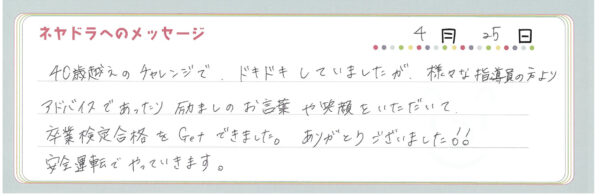 ネヤドラへのメッセージ
4月 25日
40歳越えのチャレンジで、ドキドキしていましたが、様々な指導員の方より
アドバイスであったり励ましのお言葉や笑顔をいただいて、
卒業検定合格をGetできました。ありがとうございました!!
安全運転でやっていきます。